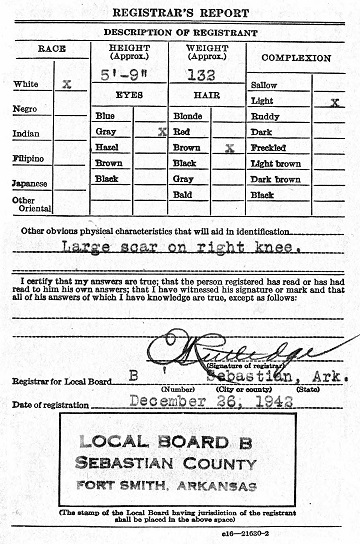 REGISTRAR'S REPORT
DESCRIPTION OF REGISTRANT
RACE
HEIGHT (Approx.)
WEIGHT (Approx.)
COMPLEXION
5'-9"
133
White X
Negro
Indian
Filipino
Japanese
Other Oriental
EYES
Blue
Gray X
Hazel
Brown
Black
HAIR
Blonde
Red
Brown X
Black
Gray
Bald
Sallow
Light X
Ruddy
Dark
Freckled
Light brown
Dark brown
Black
Other obvious physical characteristics that will aid in identification
Large scar on right knee.
I certify that my answers are true; that the person registered has read or has had
read to him his own answers; that I have witnessed his signature or mark and that
all of his answers of which I have knowledge are true, except as follows:
Rutledge
(Signature of registrar)
Registrar for Local Board B Sebastian, Ark.
(Number) (City or county) (State)
Date of registration December 26, 1942
LOCAL BOARD B
SEBASTIAN COUNTY
FORT SMITH, ARKANSAS
(The stamp of the Local Board having jurisdiction of the registrant
shall be placed in the above space)
c16—21630-2